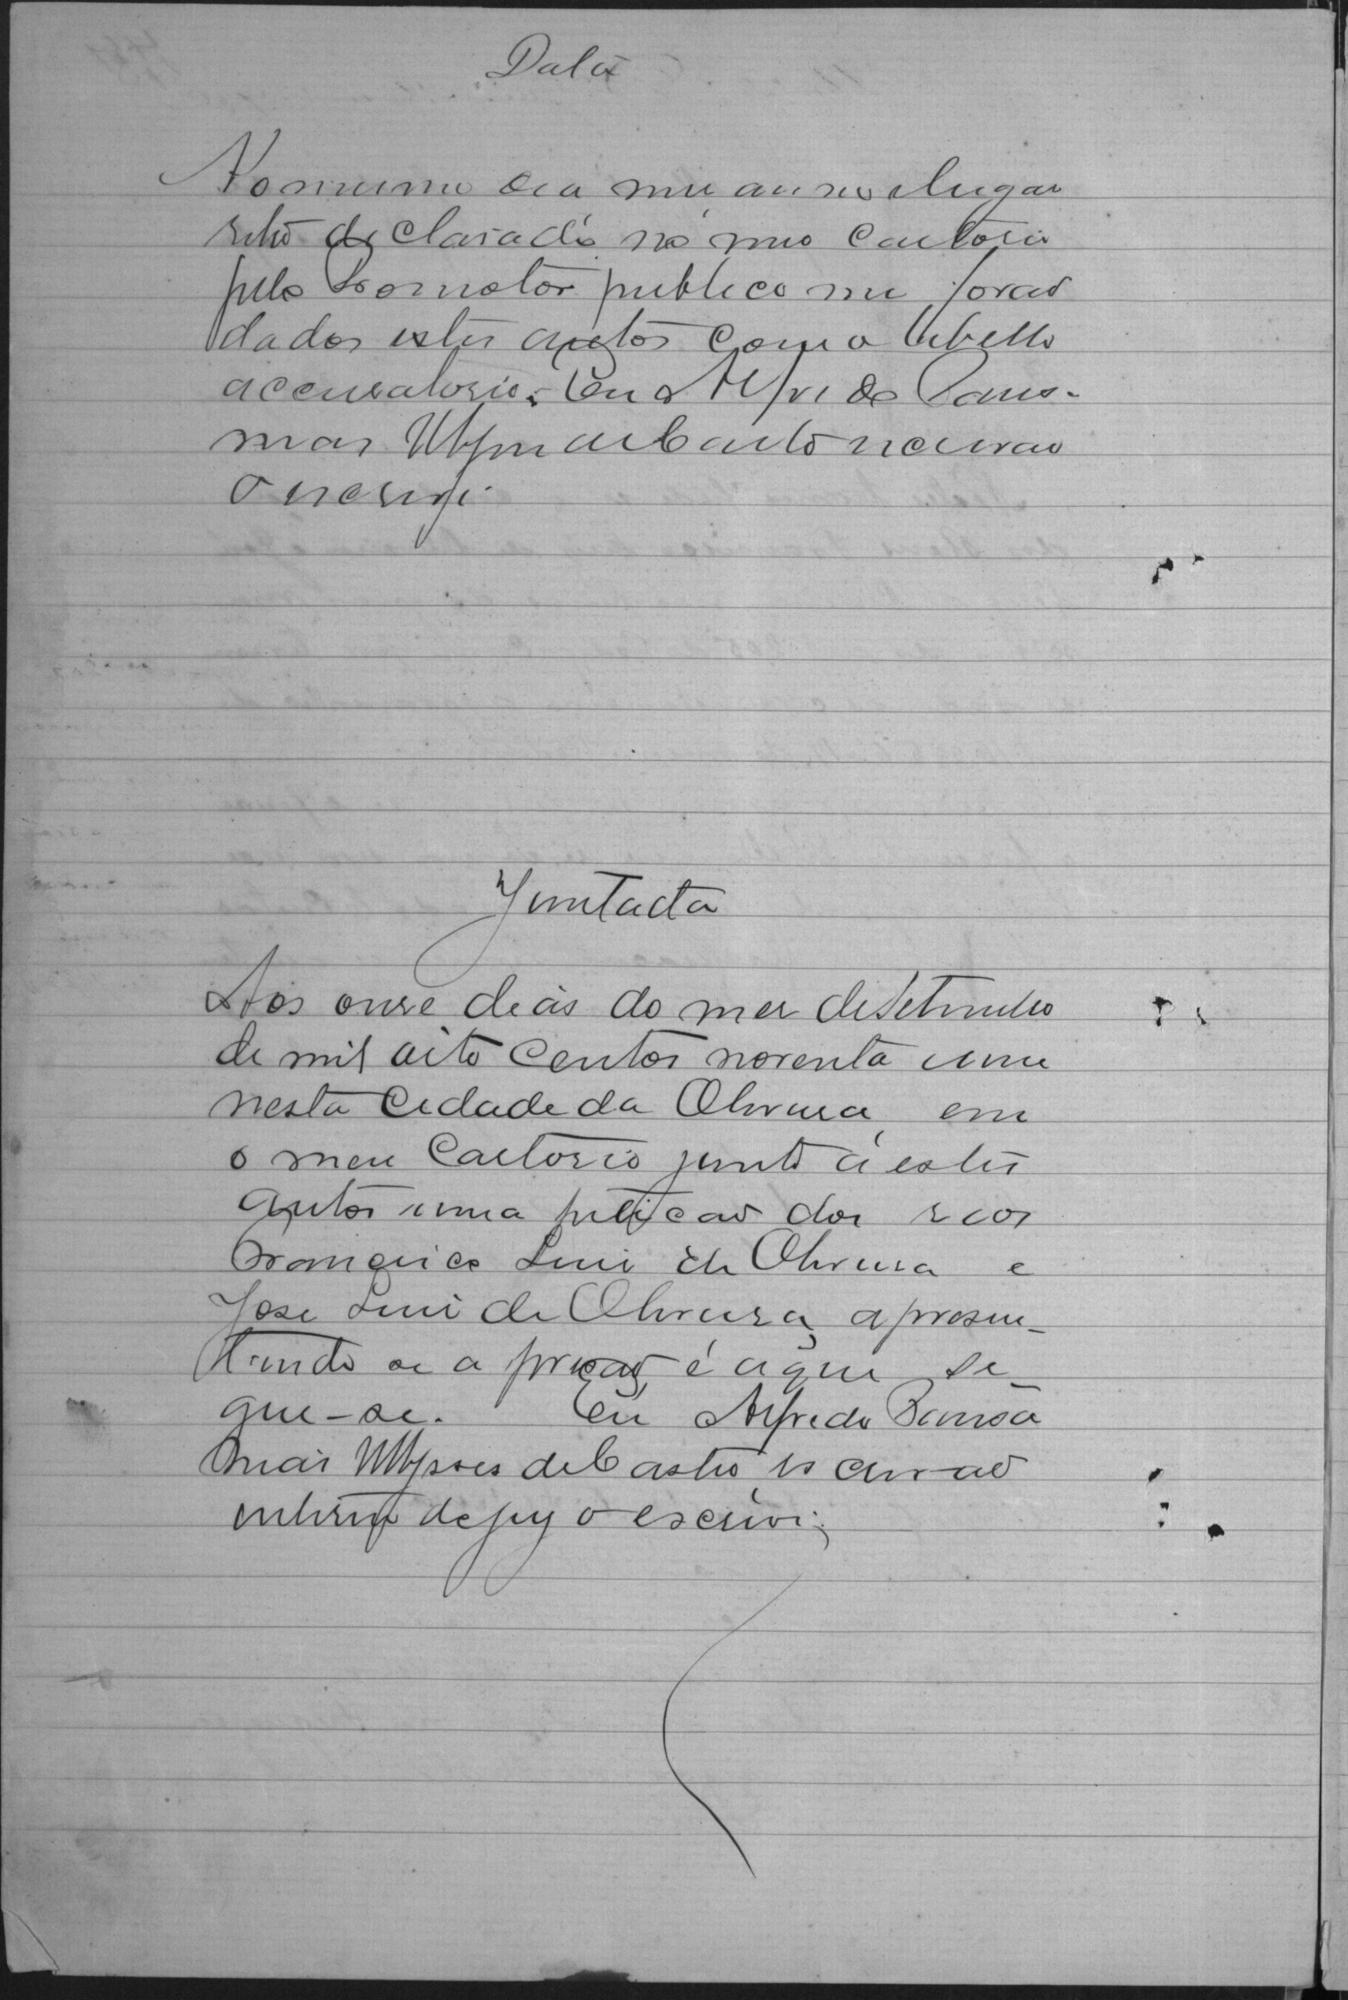 Data
No mesmo dia mez anno e lugar
retro declarado no meo Cartorio
pelo Promotor publico me forão
dados estes autos com o libello
accusatorio. Eu Alfredo
mas Ulysses de Castro escrivão
o escrevi.
Juntada
Aos onze dias do mez de Setembro
de mil oito centos noventa e um
nesta Cidade da Oliveira, em
o meu Cartorio junto á estes
autos uma petição dos reos
Francisco Luiz de Oliveira e
José Luiz de Oliveira, apresen-
tando se a é a que se
gue-se. Eu Alfredo
mas Ulysses de Castro, escrivão
interino do jury o escrevi.